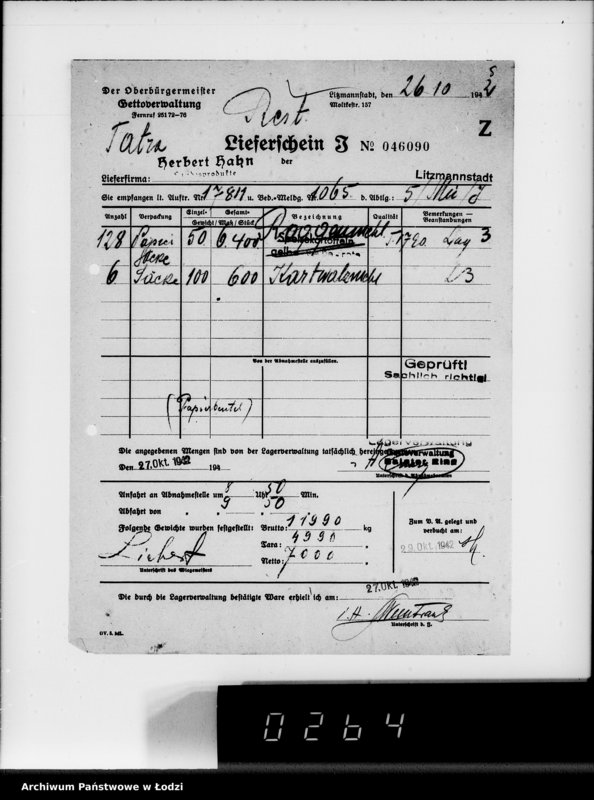 Der Oberbürgermeister
Gettoverwaltung
Fernruf 26172-76
Litzmannstadt, den 26.10 1942
Moltkestr. 157
5
Rest.
Z
Tatra
Lieferschein J № 046090
Herbert Hahn der
Lieferfirma: Litzmannstadt
Sie empfangen lt. Auftr. Nr. 17811 u. Bed.-Meldg. Nr. 1065 d. Abtlg.: 5/Mü/J
Anzahl Verpackung Einzel- Gesamt- Bezeichnung Qualität Bemerkungen - Beanstandungen
Gewicht / Maß / Stück
128 Papier 50 6.400 Roggenmehl T.1790 Lag 3
Säcke
6 Säcke 100 600 Kartwalzmehl L3
Von der Abnahmestelle auszufüllen.
Geprüft!
Sachlich richtig!
(Papierbeutel)
Lagerverwaltung
Die angegebenen Mengen sind von der Lagerverwaltung tatsächlich
Den 27. Okt. 1942 194
Anfahrt an Abnahmestelle um 8 Uhr 50 Min.
Abfahrt von " " 9 " 50 "
Folgende Gewichte wurden festgestellt: Brutto: 11990 kg
Tara: 4990 "
Netto: 7000 "
Liebert
Unterschrift des Wiegemeisters
Zum V. A. gelegt und
verbucht am:
29. Okt. 1942
Die durch die Lagerverwaltung bestätigte Ware erhielt ich am: 27. Okt. 1942
i.A.
Unterschrift d. J.
GV. 5. Mil.
0264
Archiwum Państwowe w Łodzi